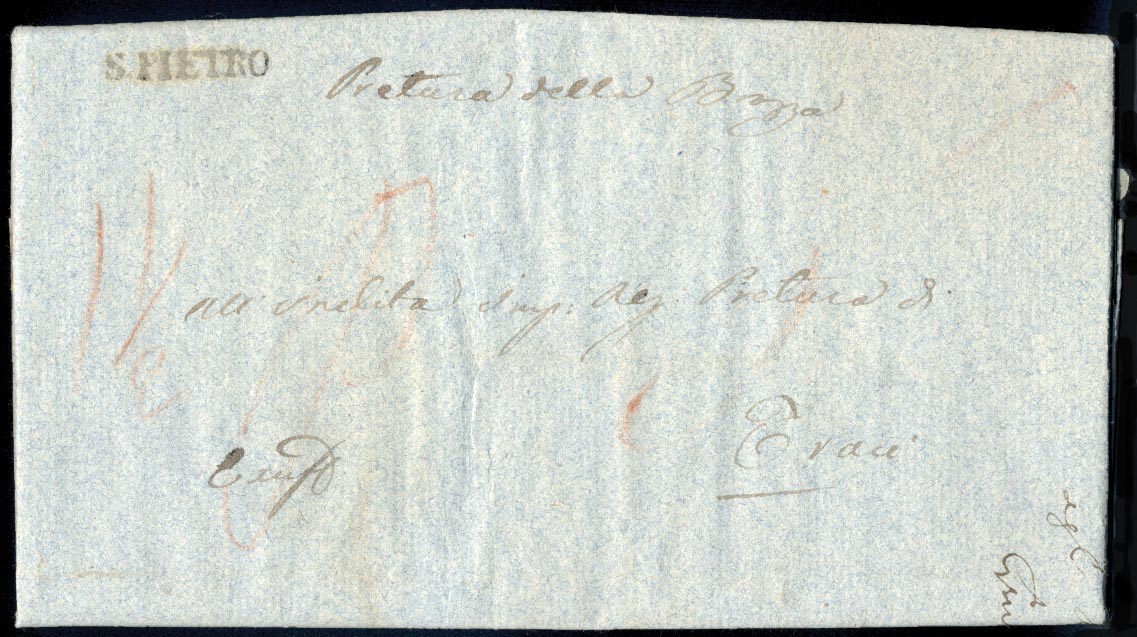 S. PIETRO
Pretura della Brazza
All' Inclita Imp: Reg: Pretura di
Traù